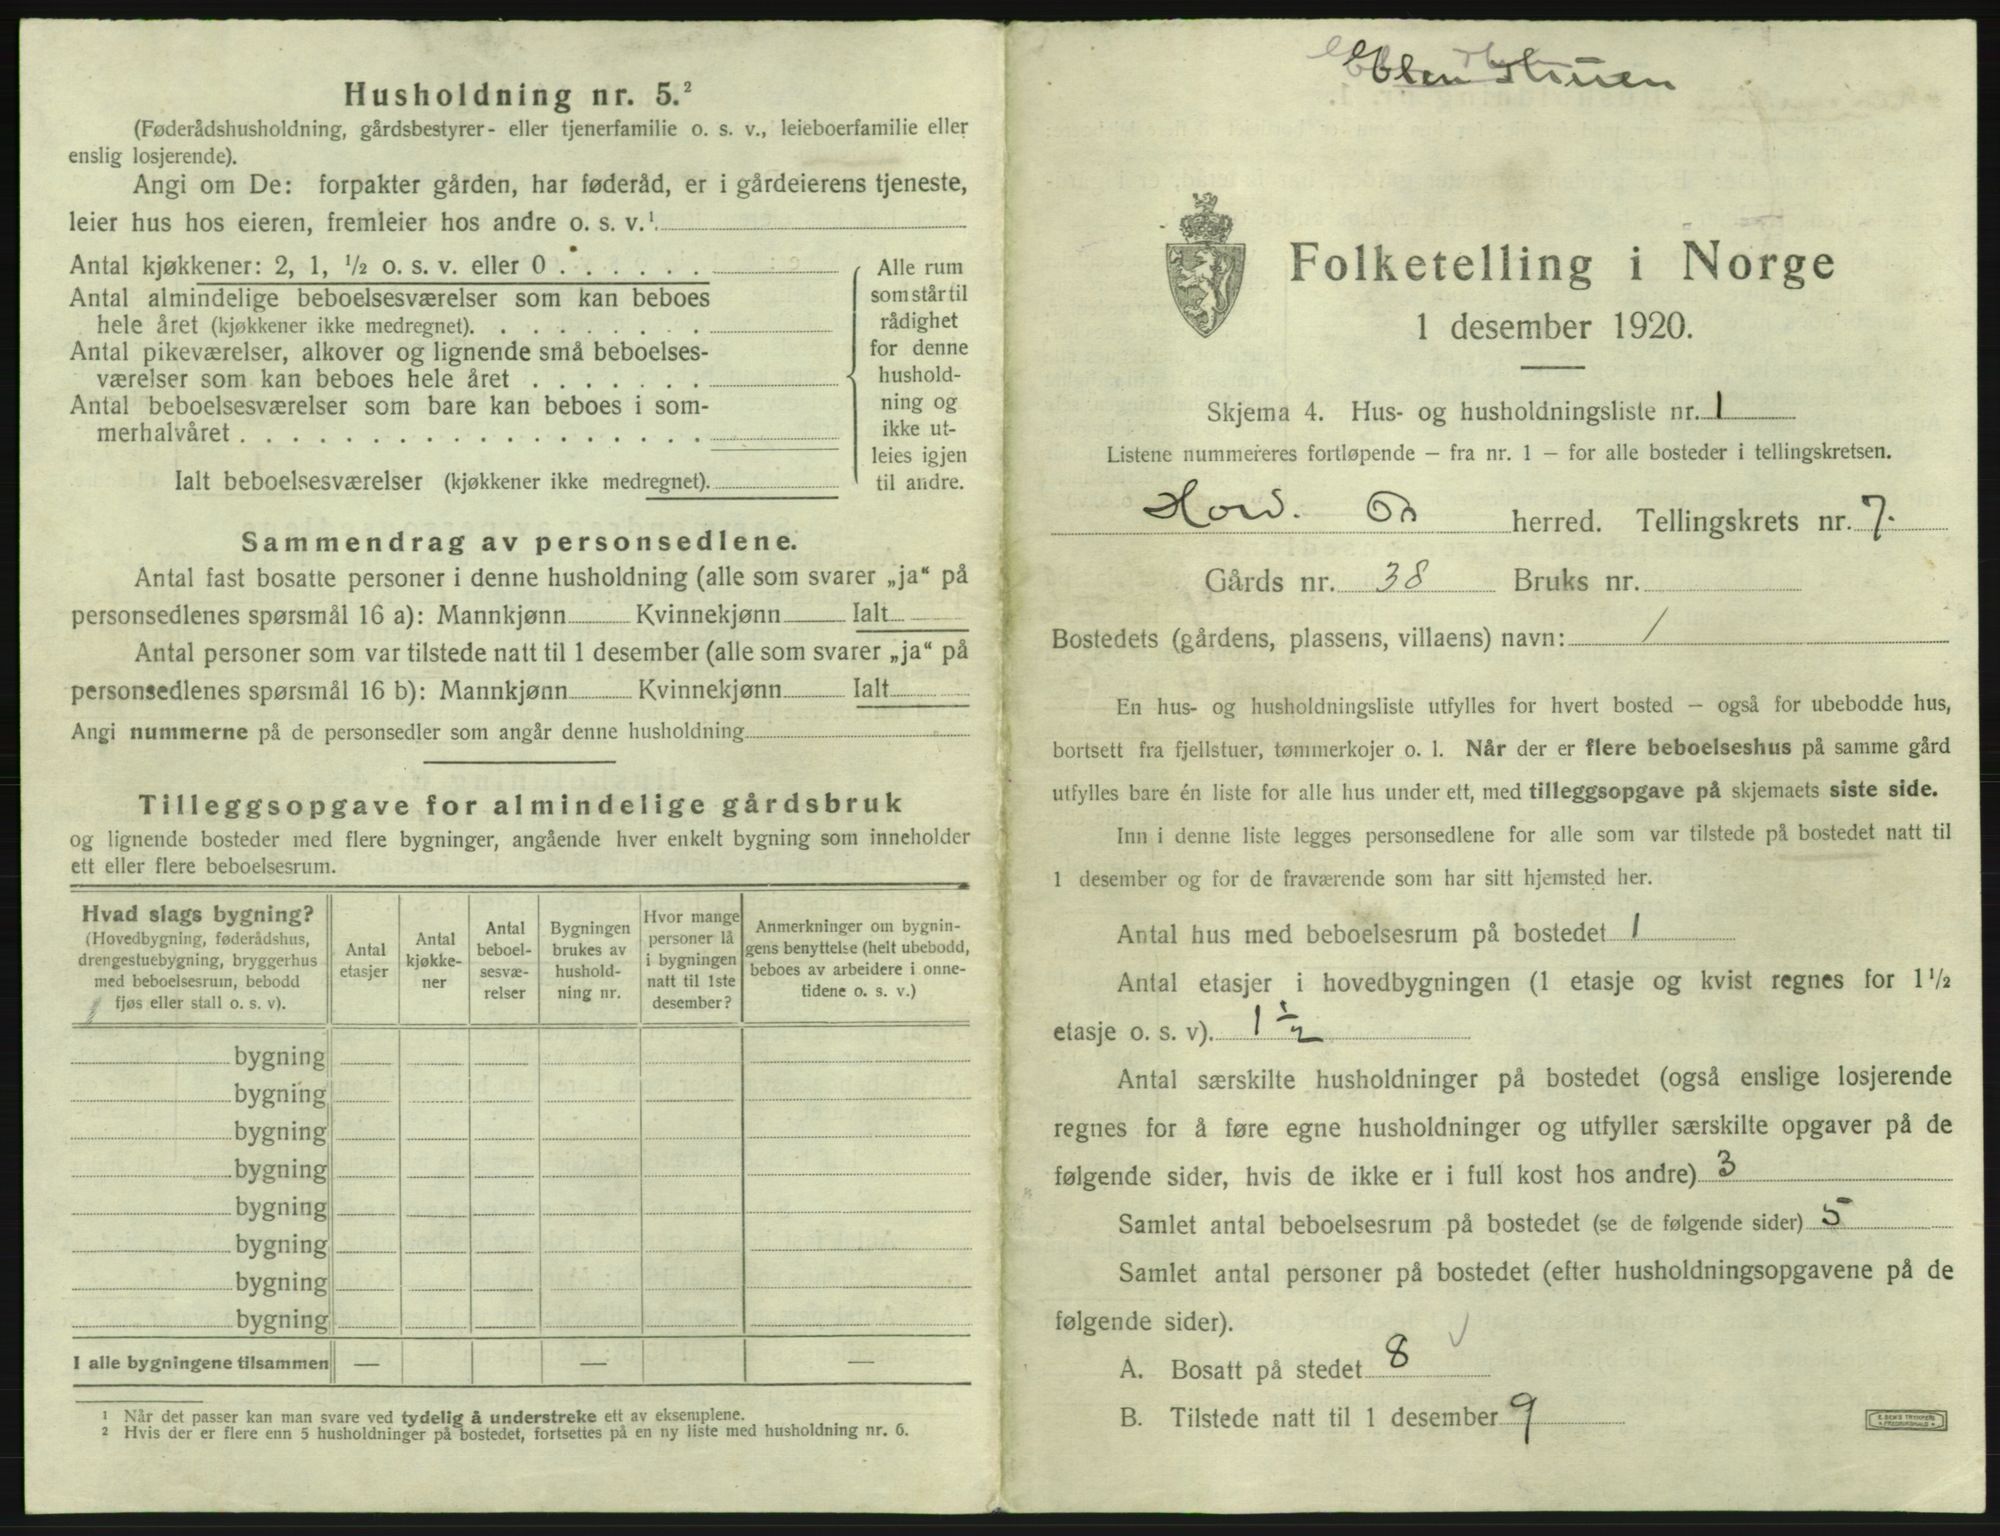 Husholdning nr. 5.²
(Føderådshusholdning, gårdsbestyrer- eller tjenerfamilie o. s. v., leieboerfamilie eller
enslig losjerende).
Angi om De: forpakter gården, har føderåd, er i gårdeierens tjeneste,
leier hus hos eieren, fremleier hos andre o. s. v.¹
Antal kjøkkener: 2, 1, ½ o. s. v. eller 0 . . . . . .
Antal almindelige beboelsesværelser som kan beboes
hele året (kjøkkener ikke medregnet). . . . . . . . .
Antal pikeværelser, alkover og lignende små beboelses-
værelser som kan beboes hele året . . . . . . .
Antal beboelsesværelser som bare kan beboes i som-
merhalvåret . . . . . . . . . . . . . . . . . .
Ialt beboelsesværelser (kjøkkener ikke medregnet).
Alle rum
som står til
rådighet
for denne
hushold-
ning og
ikke ut-
leies igjen
til andre.
Sammendrag av personsedlene.
Antal fast bosatte personer i denne husholdning (alle som svarer „ja“ på
personsedlenes spørsmål 16 a): Mannkjønn Kvinnekjønn Ialt
Antal personer som var tilstede natt til 1 desember (alle som svarer „ja“ på
personsedlenes spørsmål 16 b): Mannkjønn Kvinnekjønn Ialt
Angi nummerne på de personsedler som angår denne husholdning
Tilleggsopgave for almindelige gårdsbruk
og lignende bosteder med flere bygninger, angående hver enkelt bygning som inneholder
ett eller flere beboelsesrum.
Hvad slags bygning?
(Hovedbygning, føderådshus,
drengestuebygning, bryggerhus
med beboelsesrum, bebodd
fjøs eller stall o. s. v).
Antal
etasjer
Antal
kjøkke-
ner
Antal
beboel-
sesvæ-
relser
Bygningen
brukes av
hushold-
ning nr.
Hvor mange
personer lå
i bygningen
natt til 1ste
desember?
Anmerkninger om bygnin-
gens benyttelse (helt ubebodd,
beboes av arbeidere i onne-
tidene o. s. v.)
bygning
bygning
bygning
bygning
bygning
bygning
bygning
bygning
I alle bygningene tilsammen — — —
¹ Når det passer kan man svare ved tydelig å understreke ett av eksemplene.
² Hvis der er flere enn 5 husholdninger på bostedet, fortsettes på en ny liste med husholdning nr. 6.
Folketelling i Norge
1 desember 1920.
Skjema 4. Hus- og husholdningsliste nr. 1
Listene nummereres fortløpende – fra nr. 1 – for alle bosteder i tellingskretsen.
herred. Tellingskrets nr. 7.
Gårds nr. 38 Bruks nr.
Bostedets (gårdens, plassens, villaens) navn: 1
En hus- og husholdningsliste utfylles for hvert bosted – også for ubebodde hus,
bortsett fra fjellstuer, tømmerkojer o. l. Når der er flere beboelseshus på samme gård
utfylles bare én liste for alle hus under ett, med tilleggsopgave på skjemaets siste side.
Inn i denne liste legges personsedlene for alle som var tilstede på bostedet natt til
1 desember og for de fraværende som har sitt hjemsted her.
Antal hus med beboelsesrum på bostedet 1
Antal etasjer i hovedbygningen (1 etasje og kvist regnes for 1½
etasje o. s. v). 1 ½
Antal særskilte husholdninger på bostedet (også enslige losjerende
regnes for å føre egne husholdninger og utfyller særskilte opgaver på de
følgende sider, hvis de ikke er i full kost hos andre) 3
Samlet antal beboelsesrum på bostedet (se de følgende sider) 5
Samlet antal personer på bostedet (efter husholdningsopgavene på de
følgende sider).
A. Bosatt på stedet 8
B. Tilstede natt til 1 desember 9